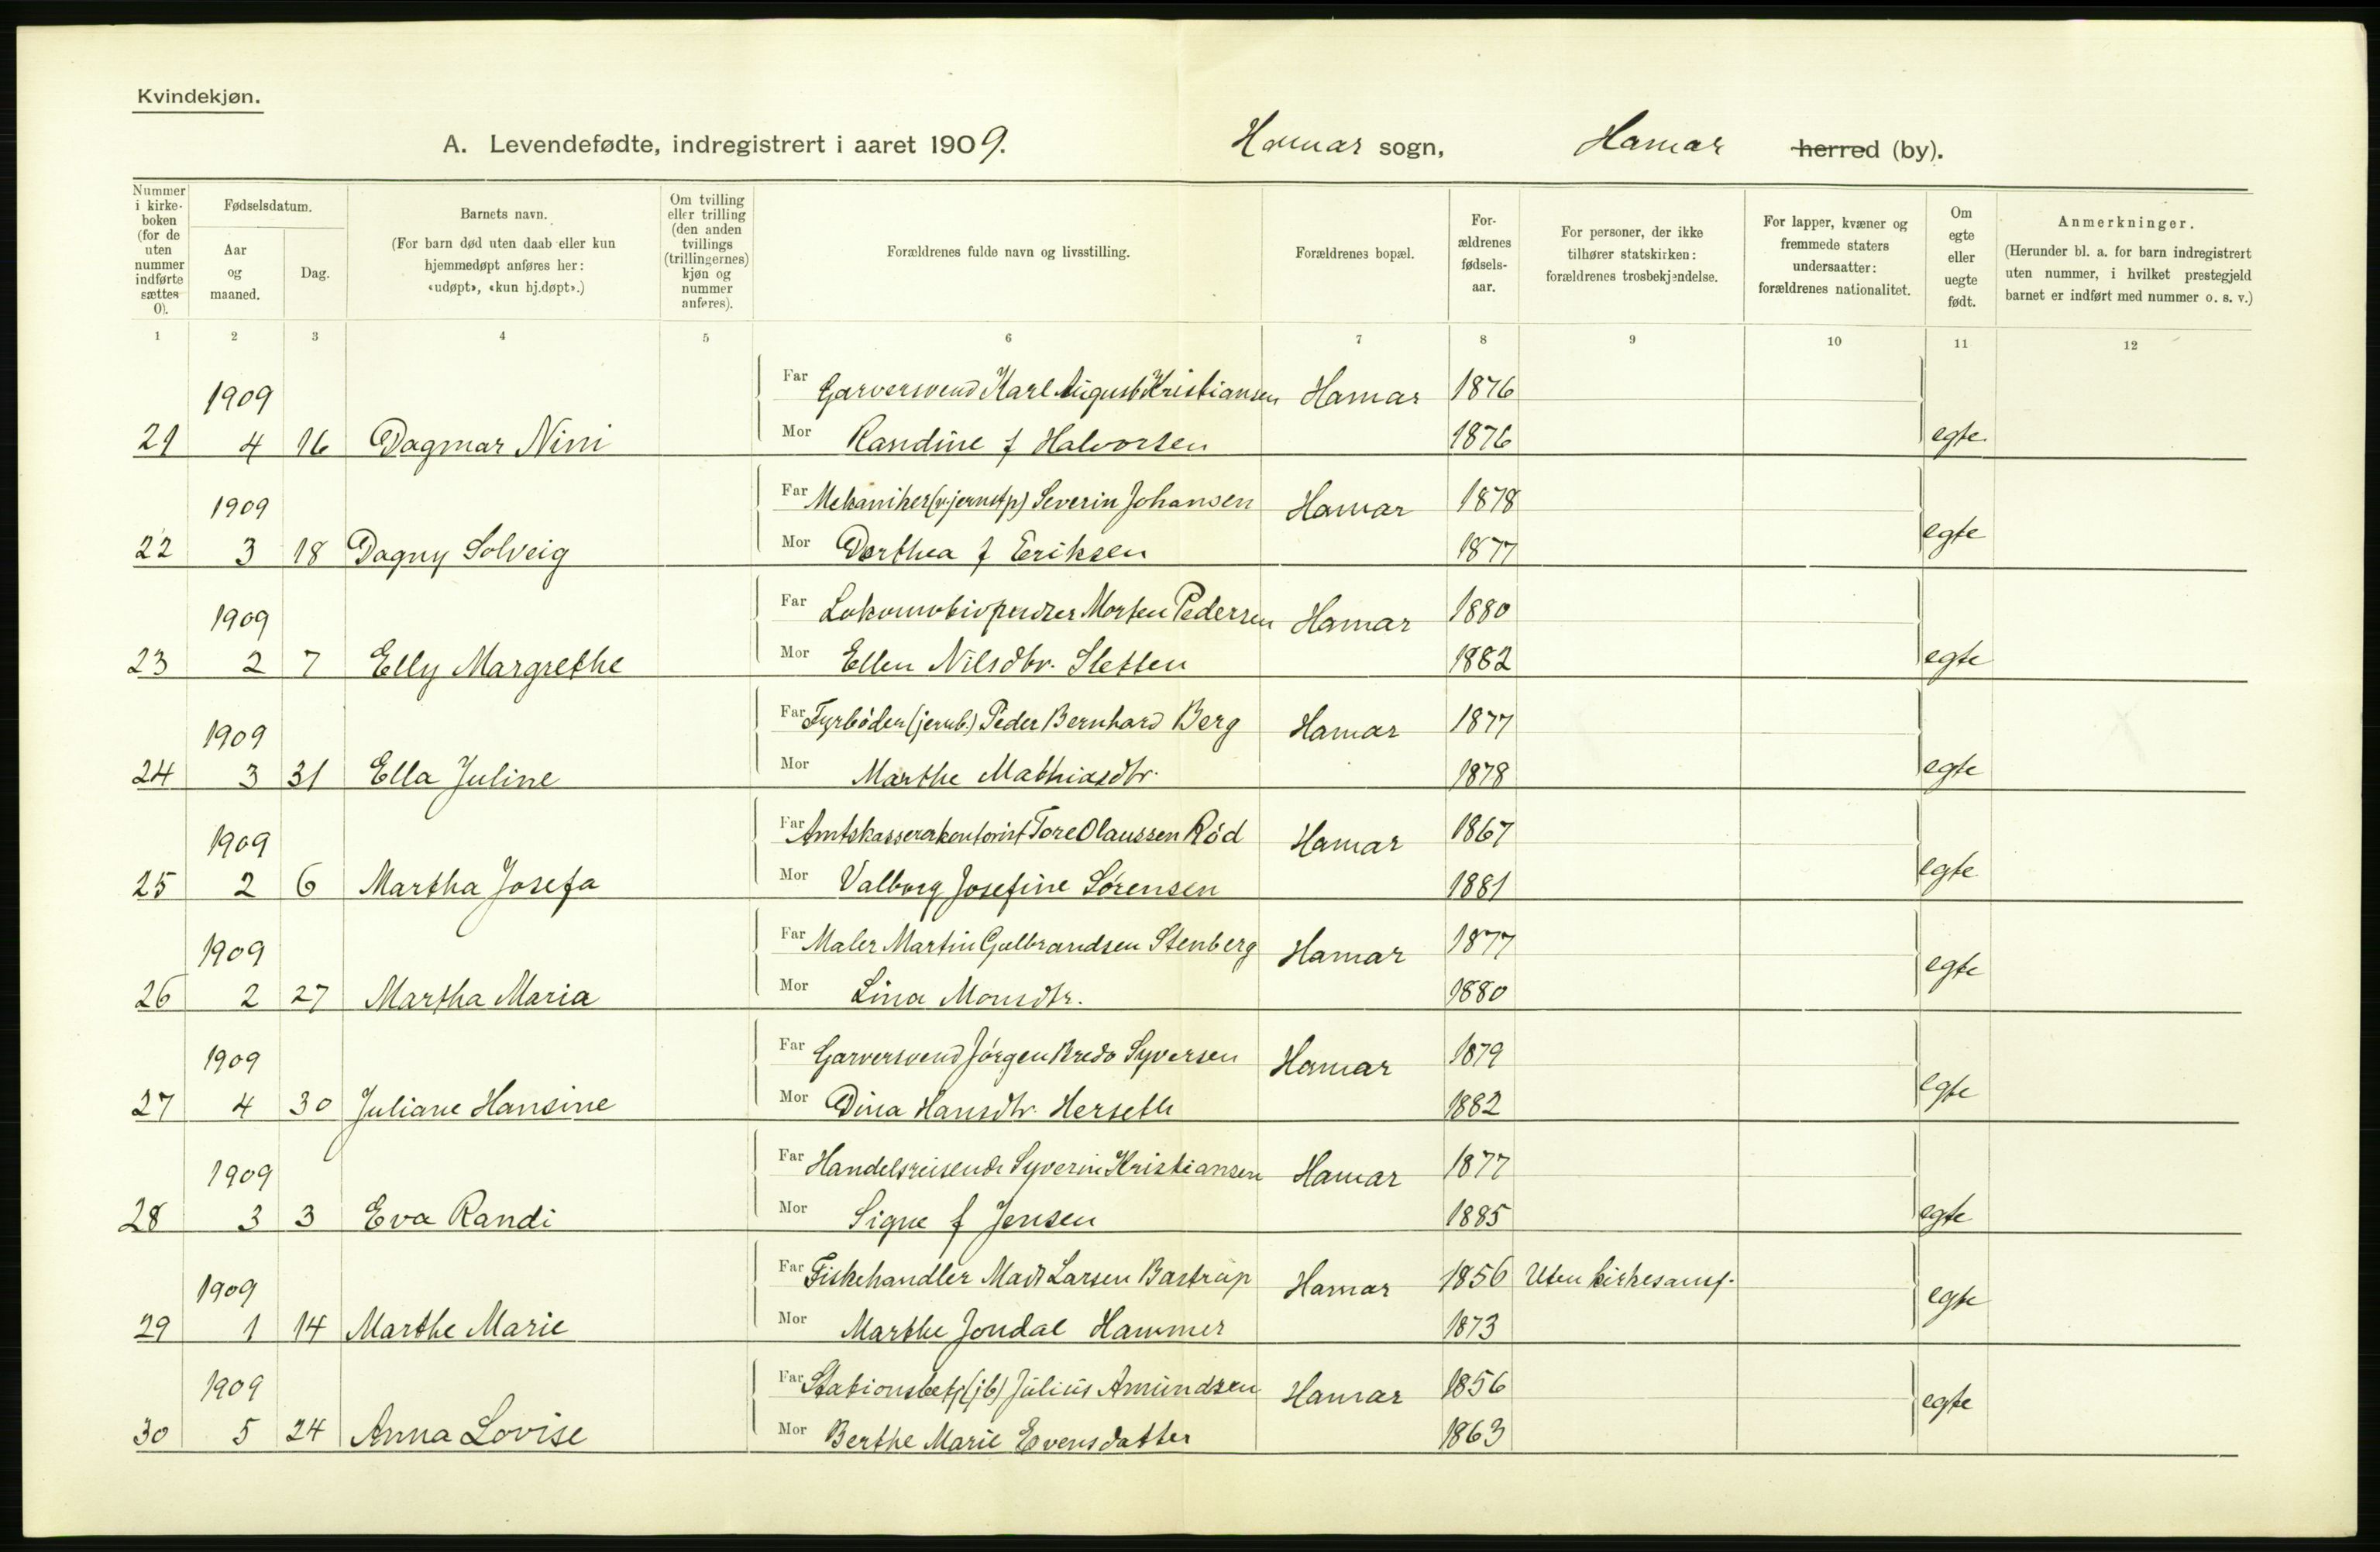 Kvindekjøn.
A. Levendefødte, indregistrert i aaret 1909. Hamar sogn, Hamar herred (by).
Nummer i kirkeboken (for de uten nummer indførte sættes 0).
Fødselsdatum.
Aar og maaned.
Dag.
Barnets navn.
(For barn død uten daab eller kun hjemmedøpt anføres her: «udøpt», «kun hj.døpt».)
Om tvilling eller trilling (den anden tvillings (trillingernes) kjøn og nummer anføres).
Forældrenes fulde navn og livsstilling.
Forældrenes bopæl.
For-ældrenes fødsels-aar.
For personer, der ikke tilhører statskirken: forældrenes trosbekjendelse.
For lapper, kvæner og fremmede staters undersaatter: forældrenes nationalitet.
Om egte eller uegte født.
Anmerkninger.
(Herunder bl. a. for barn indregistrert uten nummer, i hvilket prestegjeld barnet er indført med nummer o. s. v.)
1 2 3 4 5 6 7 8 9 10 11 12
1909 Far Garversvend Karl August Kristiansen Hamar 1876
21 4 16 Dagmar Nini Mor Randine f Halvorsen 1876 egte
1909 Far Mekaniker (v. jernstp) Severin Johansen Hamar 1878
22 3 18 Dagny Solveig Mor Dorthea f Eriksen 1877 egte
1909 Far Lokomotivpudser Morten Pedersen Hamar 1880
23 2 7 Elly Margrethe Mor Ellen Nilsdtr. Sletten 1882 egte
1909 Far Fyrbøder (jernb.) Peder Bernhard Berg Hamar 1877
24 3 31 Ella Juline Mor Marthe Mathiasdtr. 1878 egte
1909 Far Amtskassererkontorist Tore Olaussen Rød Hamar 1867
25 2 6 Martha Josefa Mor Valborg Josefine Sørensen 1881 egte
1909 Far Maler Martin Gulbrandsen Stenberg Hamar 1877
26 2 27 Martha Maria Mor Lina Monsdtr. 1880 egte
1909 Far Garversvend Jørgen Bredo Syversen Hamar 1879
27 4 30 Juliane Hansine Mor Dina Hansdtr. Herseth 1882 egte
1909 Far Handelsreisende Syverin Kristiansen Hamar 1877
28 3 3 Eva Randi Mor Signe f Jensen 1885 egte
1909 Far Fiskehandler Mads Larsen Bastrup Hamar 1856 Uten kirkesamf.
29 1 14 Marthe Marie Mor Marthe Jondal Hammer 1873 egte
1909 Far Stationsbetj (jb) Julius Amundsen Hamar 1856
30 5 24 Anna Lovise Mor Berthe Marie Evensdatter 1863 egte